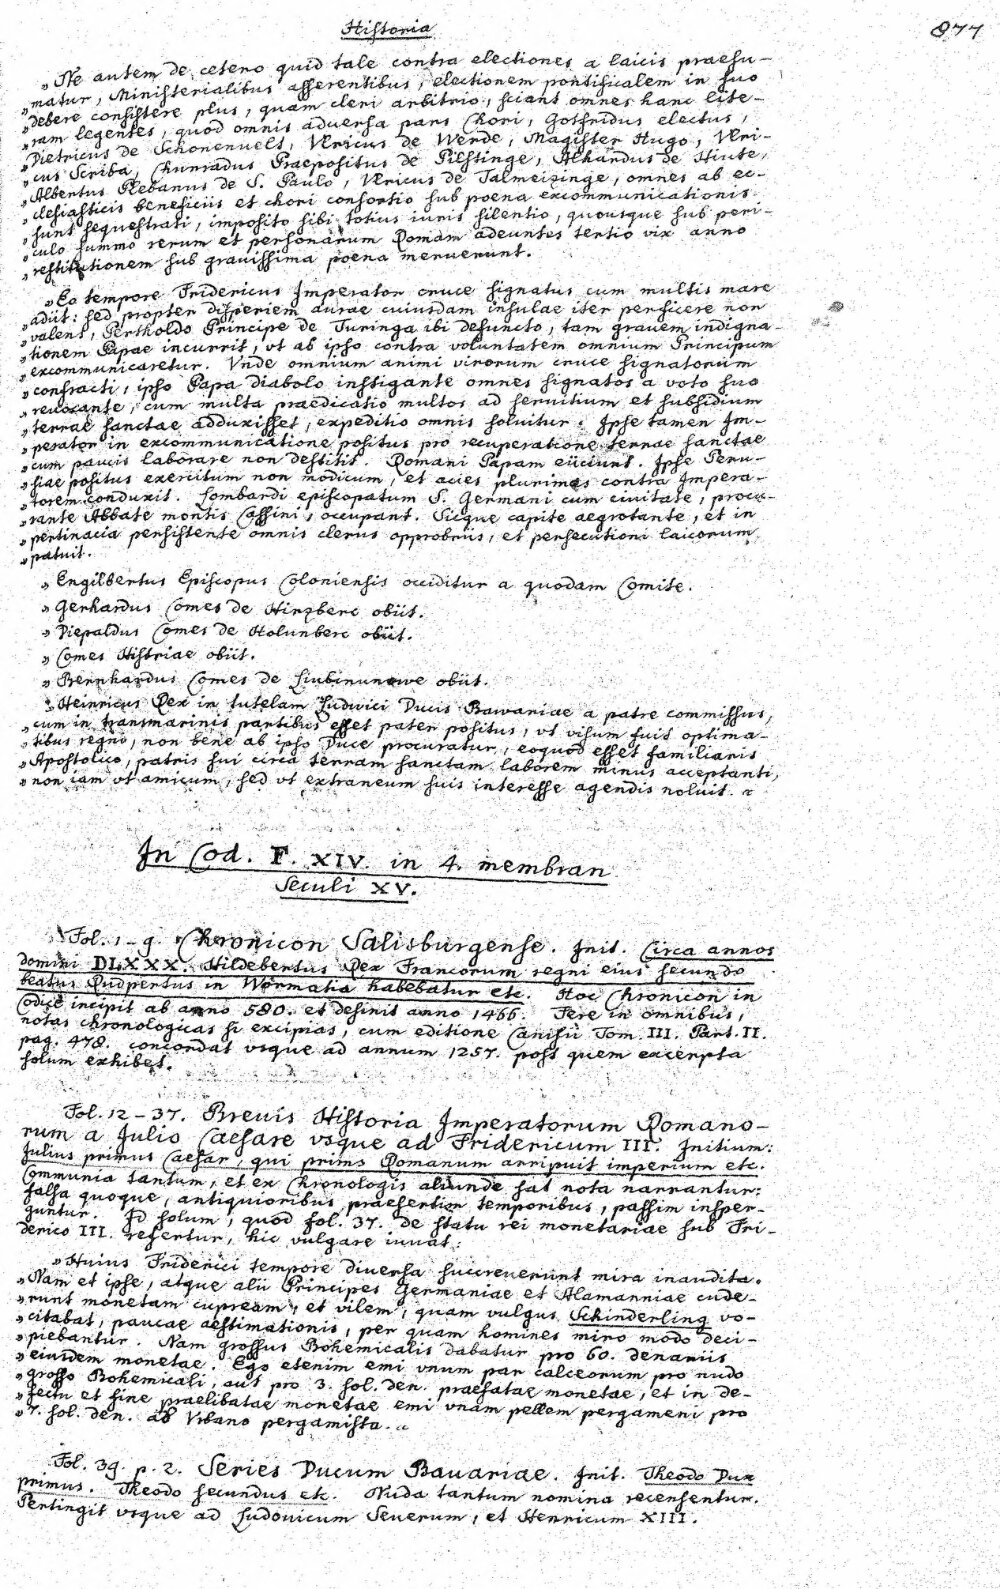 Historia
877
„Ne autem de cetero quid tale contra electiones a laicis praesu-
„matur, Ministerialibus asserentibus, electionem pontificalem in suo
„debere consistere plus, quam cleri arbitrio, sciant omnes hanc lite-
„ram legentes, quod omnis adversa pars Chori, Gotfridus electus,
„Dietricus de Schonenvels, Vlricus de Werde, Magister Hugo, Vlri-
„cus Scriba, Chunradus Praepositus de Pilstinge, Alhardus de Hiute,
„Albertus Plebanus de S. Paulo, Vlricus de Talmeizinge, omnes ab ec-
„clesiasticis beneficiis et chori consortio sub poena excommunicationis
„sunt sequestrati, imposito sibi totius iuris silentio, quousque sub peri-
„culo summo rerum et personarum Romam adeuntes tertio vix anno
„restitutionem sub gravissima poena meruerunt.
„Eo tempore Fridericus Imperator cruce signatus cum multis mare
„adiit: sed propter disperiem aurae cuiusdam insulae iter perficere non
„valens, Pertholdo Principe de Turinga ibi defuncto, tam grauem indigna-
„tionem Papae incurrit, vt ab ipso contra voluntatem omnium Principum
„excommunicaretur. Vnde omnium animi virorum cruce signatorum
„confracti, ipso Papa diabolo instigante omnes signatos a voto suo
„reuocante, cum multa praedicatio multos ad seruitium et subsidium
„terrae sanctae adduxisset, expeditio omnis soluitur. Ipse tamen Im-
„perator in excommunicatione positus pro recuperatione terrae sanctae
„cum paucis laborare non destitit. Romani Papam eiiciunt. Ipse Peru-
„siae positus exercitum non modicum, et acies plurimas contra Impera-
„torem conduxit. Lombardi episcopatum S. Germani cum ciuitate, procu-
„rante Abbate montis Cassini, occupant. Sicque capite aegrotante, et in
„pertinacia persistente omnis clerus opprobriis, et persecutioni laicorum
„patuit.
„Engilbertus Episcopus Coloniensis occiditur a quodam Comite.
„Gerhardus Comes de Hirzberc obiit.
„Diepaldus Comes de Holunberc obiit.
„Comes Histriae obiit.
„Bernhardus Comes de Liubinunowe obiit.
„Heinricus Rex in tutelam Ludwici Ducis Bawariae a patre commissus,
„cum in transmarinis partibus esset pater positus, vt visum fuit optima-
„tibus regni, non bene ab ipso Duce procuratur, eoquod esset familiaris
„Apostolico, patris sui circa terram sanctam laborem minus acceptanti,
„non iam vt amicum, sed vt extraneum suis interesse agendis noluit. “
In Cod. F. XIV. in 4. membran
Seculi XV.
Fol. 1-9. Chronicon Salisburgense. Init. Circa annos
domini DLXXX. Hildebertus Rex Francorum regni eius secundo
beatus Rudpertus in Wormatia habebatur etc. Hoc Chronicon in
Codice incipit ab anno 580. et desinit anno 1466. Fere in omnibus,
notas chronologicas si excipias, cum editione Canisii Tom. III. Part. II.
pag. 478. concordat vsque ad annum 1257. post quem excerpta
solum exhibet.
Fol. 12-37. Breuis Historia Imperatorum Romano-
rum a Julio Caesare vsque ad Fridericum III. Initium:
Julius primus Caesar, qui prims Romanum arripuit imperium etc.
Communia tantum, et ex Chronologis aliunde sat nota narrantur:
falsa quoque, antiquioribus praesertim temporibus, passim insper-
guntur. Id solum, quod fol. 37. de statu rei monetariae sub Fri-
derico III. refertur, hic vulgare iuuat:
„Huius Friderici tempore diuersa succreuerunt mira inaudita.
„Nam et ipse, atque alii Principes Germaniae et Alamanniae cude-
„runt monetam cupream, et vilem, quam vulgus Schinderling vo-
„citabat, paucae aestimationis, per quam homines miro modo deci-
„piebantur. Nam grossus Bohemicalis dabatur pro 60. denariis
„eiusdem monetae. Ego etenim emi vnum par calceorum pro nudo
„grosso Bohemicali, aut pro 3. sol. den. praefatae monetae, et in de-
„fectu et fine praelibatae monetae emi vnam pellem pergameni pro
„7. sol. den. ab Vrbano pergamista. “
Fol. 39. p. 2. Series Ducum Bauariae. Init. Theodo Dux
primus. Theodo secundus etc. Nuda tantum nomina recensentur.
Pertingit vsque ad Ludouicum Seuerum, et Henricum XIII.